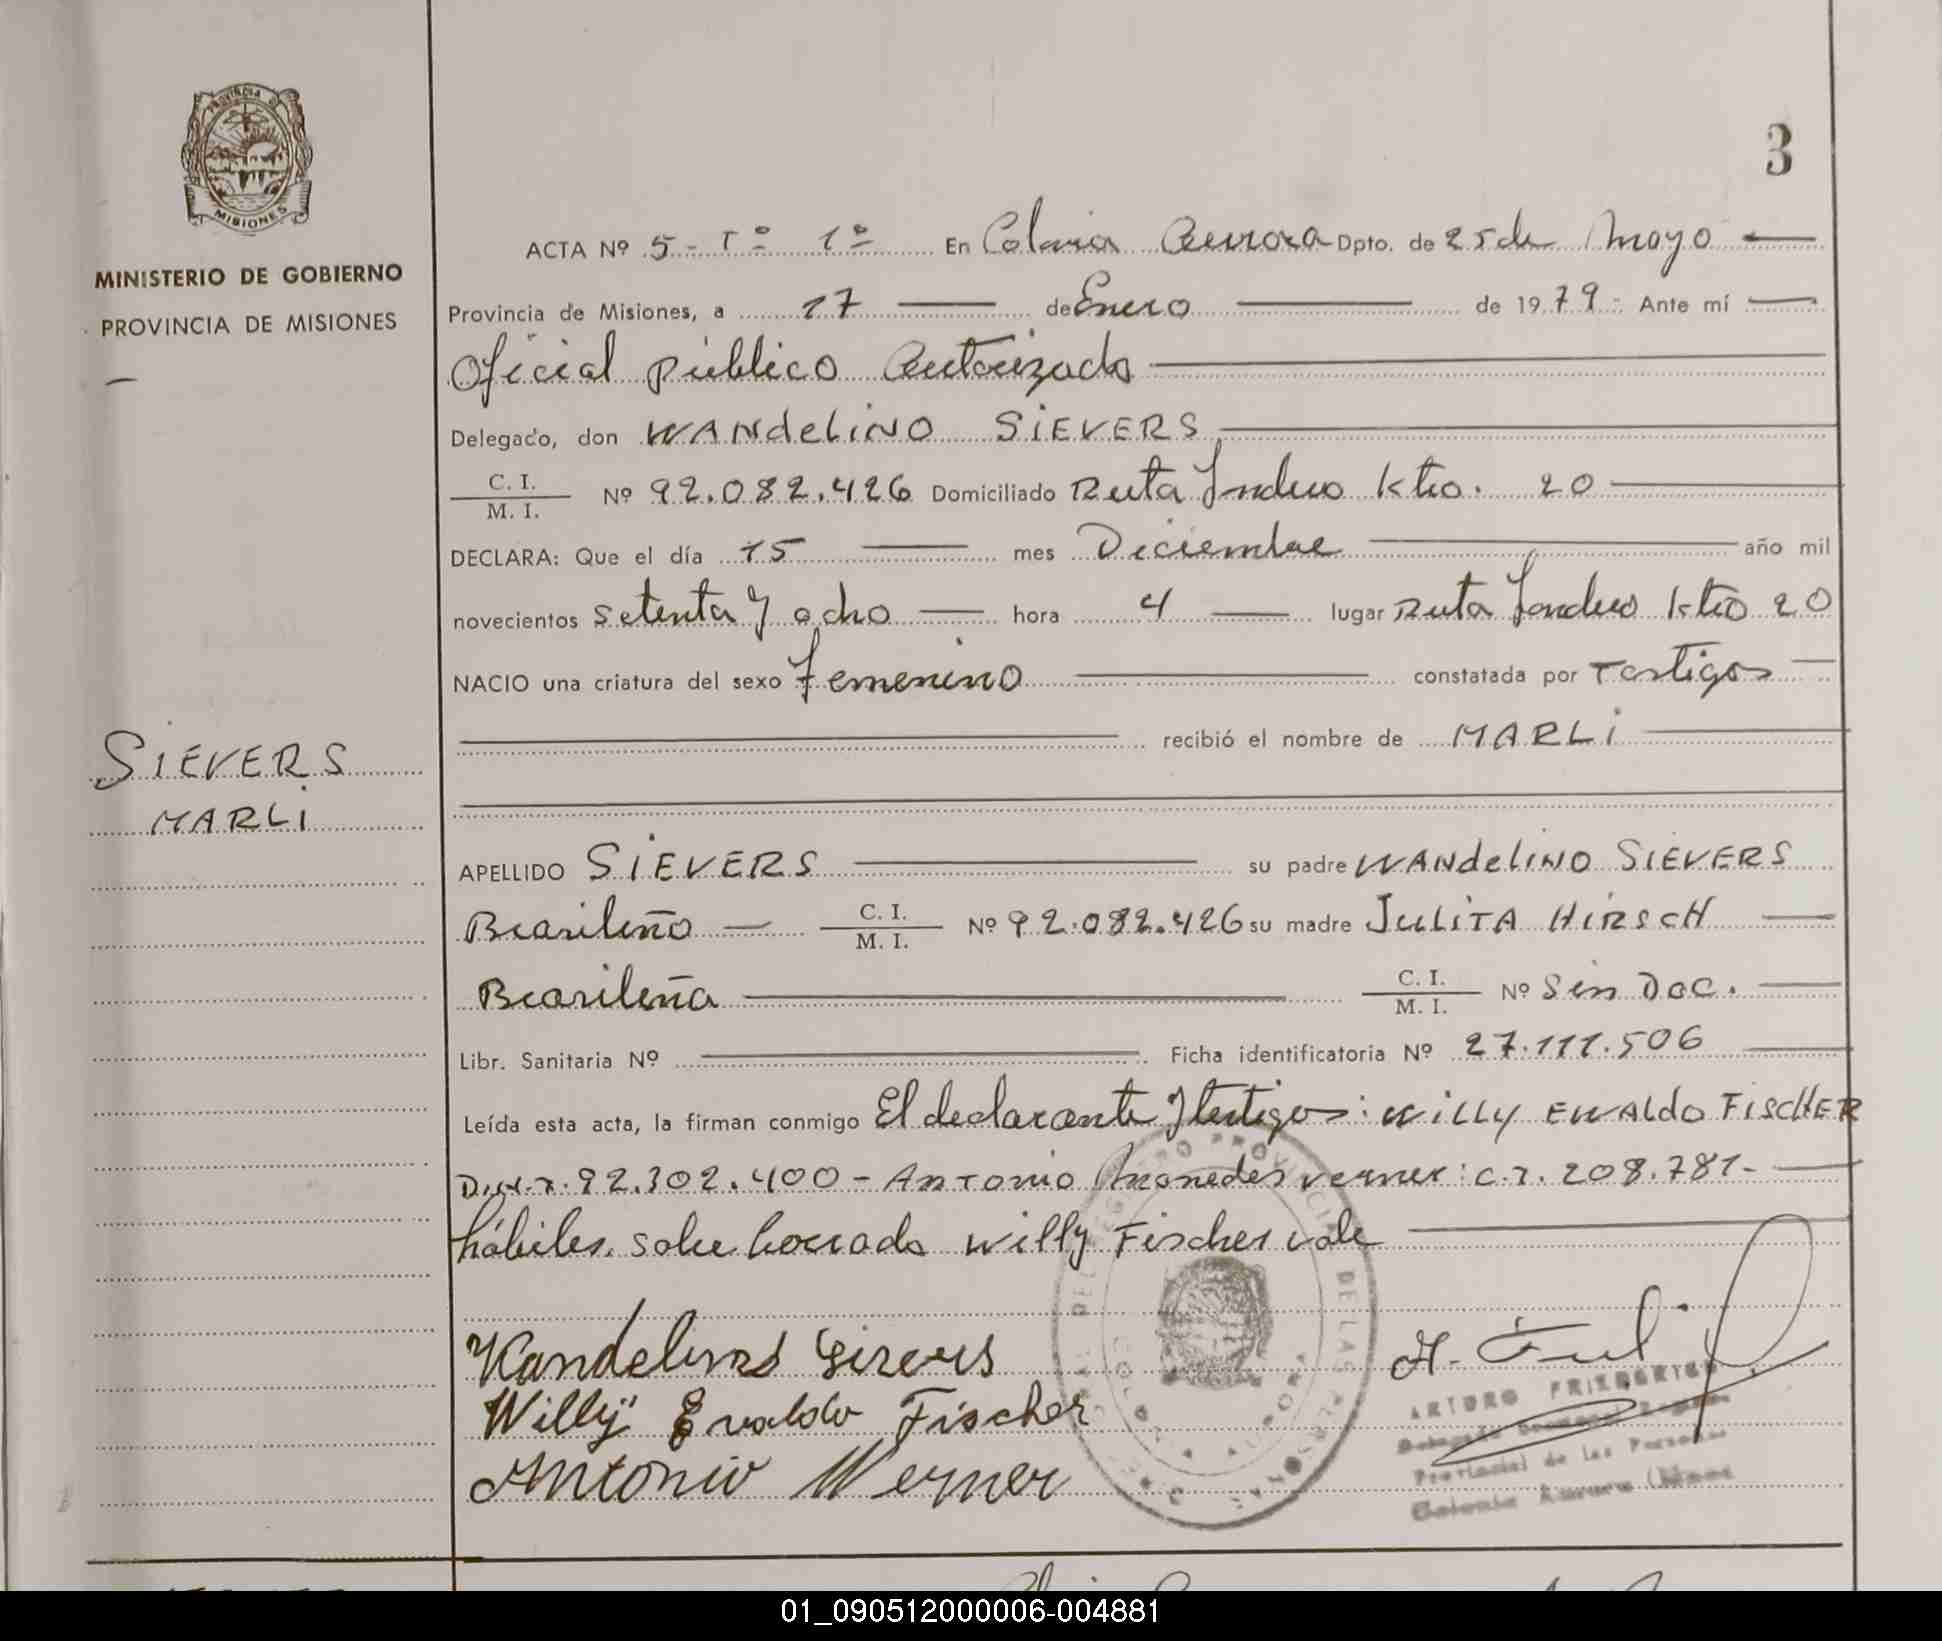 3
PROVINCIA DE
MISIONES
MINISTERIO DE GOBIERNO
PROVINCIA DE MISIONES
SIEVERS
MARLI
ACTA Nº 5 - Tº 1º En Colonia Aurora Dpto. de 25 de Mayo
Provincia de Misiones, a 17 de Enero de 1979 Ante mí
Oficial público Autorizado
Delegado, don WANdELiNO SiEVERS
C. I. / M. I. Nº 92.082.426 Domiciliado Ruta Km. 20
DECLARA: Que el día 15 mes Diciembre año mil
novecientos setenta y ocho hora 4 lugar Ruta Km 20
NACIO una criatura del sexo femenino constatada por Testigos
recibió el nombre de MARLi
APELLIDO SiEVERS su padre WANdELiNO SiEVERS
Brasileño C. I. / M. I. Nº 92.082.426 su madre JULiTA HiRSCH
Brasileña C. I. / M. I. Nº Sin Doc.
Libr. Sanitaria Nº Ficha identificatoria Nº 27.111.506
Leída esta acta, la firman conmigo El declarante y testigos: WiLLY EWALdO FiSCHER
D.N.I. 92.302.400 - ANTONiO Werner: C.I. 208.781-
hábiles. sobre borrado Willy Fischer vale
Wandelino Sievers
Willy Evaldo Fischer
Antonio Werner
ARTURO FRIEDERICH
Provincial de las Personas
Colonia Aurora
01_090512000006-004881